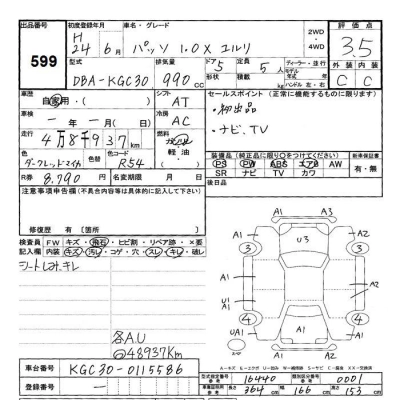 出品番号
599
初度登録年月
H 24年 6月
車名・グレード
パッソ 1.0X ユルリ
2WD
4WD
評価点
3.5
型式
DBA-KGC30
排気量
990 cc
ドア 5
形状
定員 5人
積載 kg
ディーラー・並行
モデル年式 年
ハンドル 左・右
外装 内装
C C
車歴
自家用・( )
シフト
AT
セールスポイント (正常に機能するものに限ります)
・初出品
・ナビ、TV
車検
— 年 — 月( 日)
冷房
AC
走行
4万8千937Km
燃料
ガソリン
軽油
( )
色
ダークレッドマイカ
色替
色コード
R54
装備品 (純正品に限り○をつけてください)
PS PW ABS エアB AW
SR ナビ TV カワ
新車保証書
有・無
R券 8,790円
名変期限 月 日
後日品
注意事項申告欄 (不具合内容等は具体的に記入して下さい)
修復歴 有 〔箇所 〕
検査員記入欄
FW キズ・飛石・ヒビ割・リペア跡・×要
内装 キズ・汚れ・コゲ・穴・スレ・キレ・破れ
シートしみ、キレ
各A.U
48937Km
A1 A3
A1 U3 A2
3 3
A1 A2
U1
A1
4 4
UA1 A1 A1 A2
車台番号 KGC30-0115586
登録番号 —
型式指定番号 16440
類別区分番号 0001
長さ 364 cm 幅 166 cm 高さ 153 cm